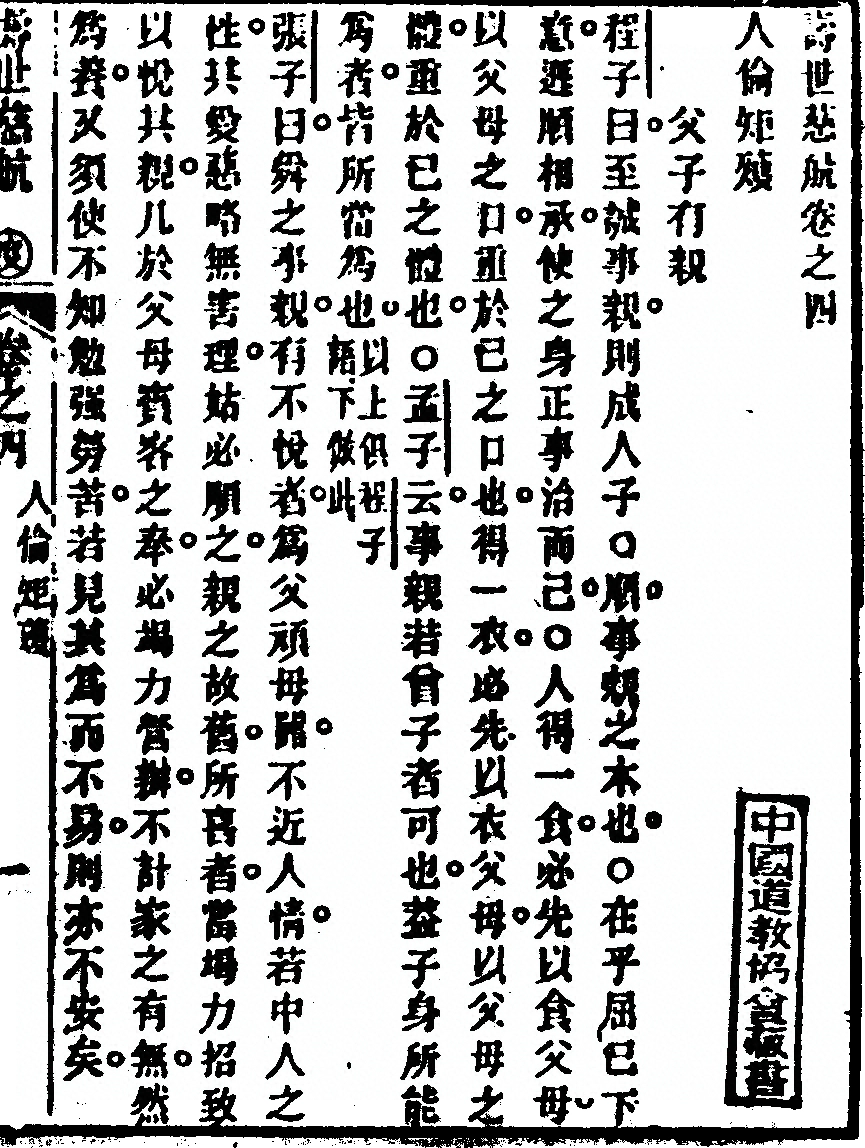 壽世慈航卷之四
人倫矩矱
父子有親
程子曰至誠事親則成人子○順事親之本也○在乎屈己下
意遜順相承使之身正事治而己○人得一食必先以食父母
以父母之口重於己之口也得一衣必先以衣父母以父母之
體重於己之體也○孟子云事親若曾子者可也蓋子身所能
爲者皆所當爲也以上俱程子語下倣此
張子曰舜之事親有不悅者爲父頑母嚚不近人情若中人之
性其愛惡略無害理姑必順之親之故舊所喜者當竭力招致
以悅其親凡於父母賓客之奉必竭力營辦不計家之有無然
爲養又須使不知勉强勞苦若見其爲而不易則亦不安矣
壽世慈航
卷之四
人倫矩矱
一
中國道教協會藏書